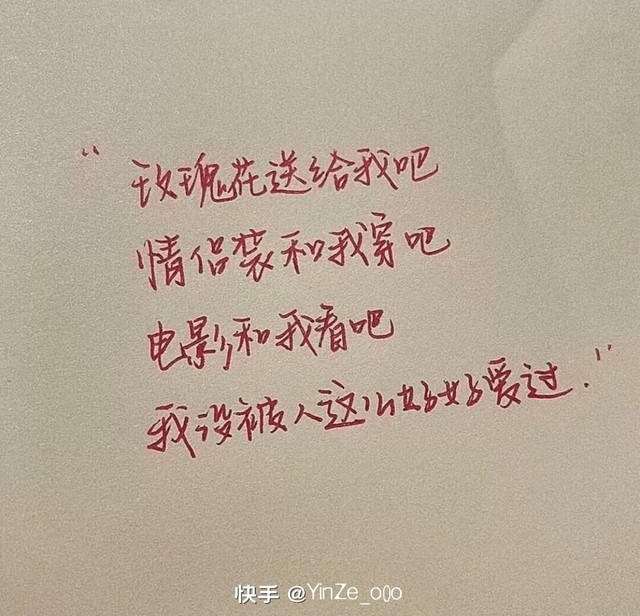 “玫瑰花送给我吧
情侣装和我穿吧
电影和我看吧
我没被人这么好好爱过.”
快手 @YinZe_o0o